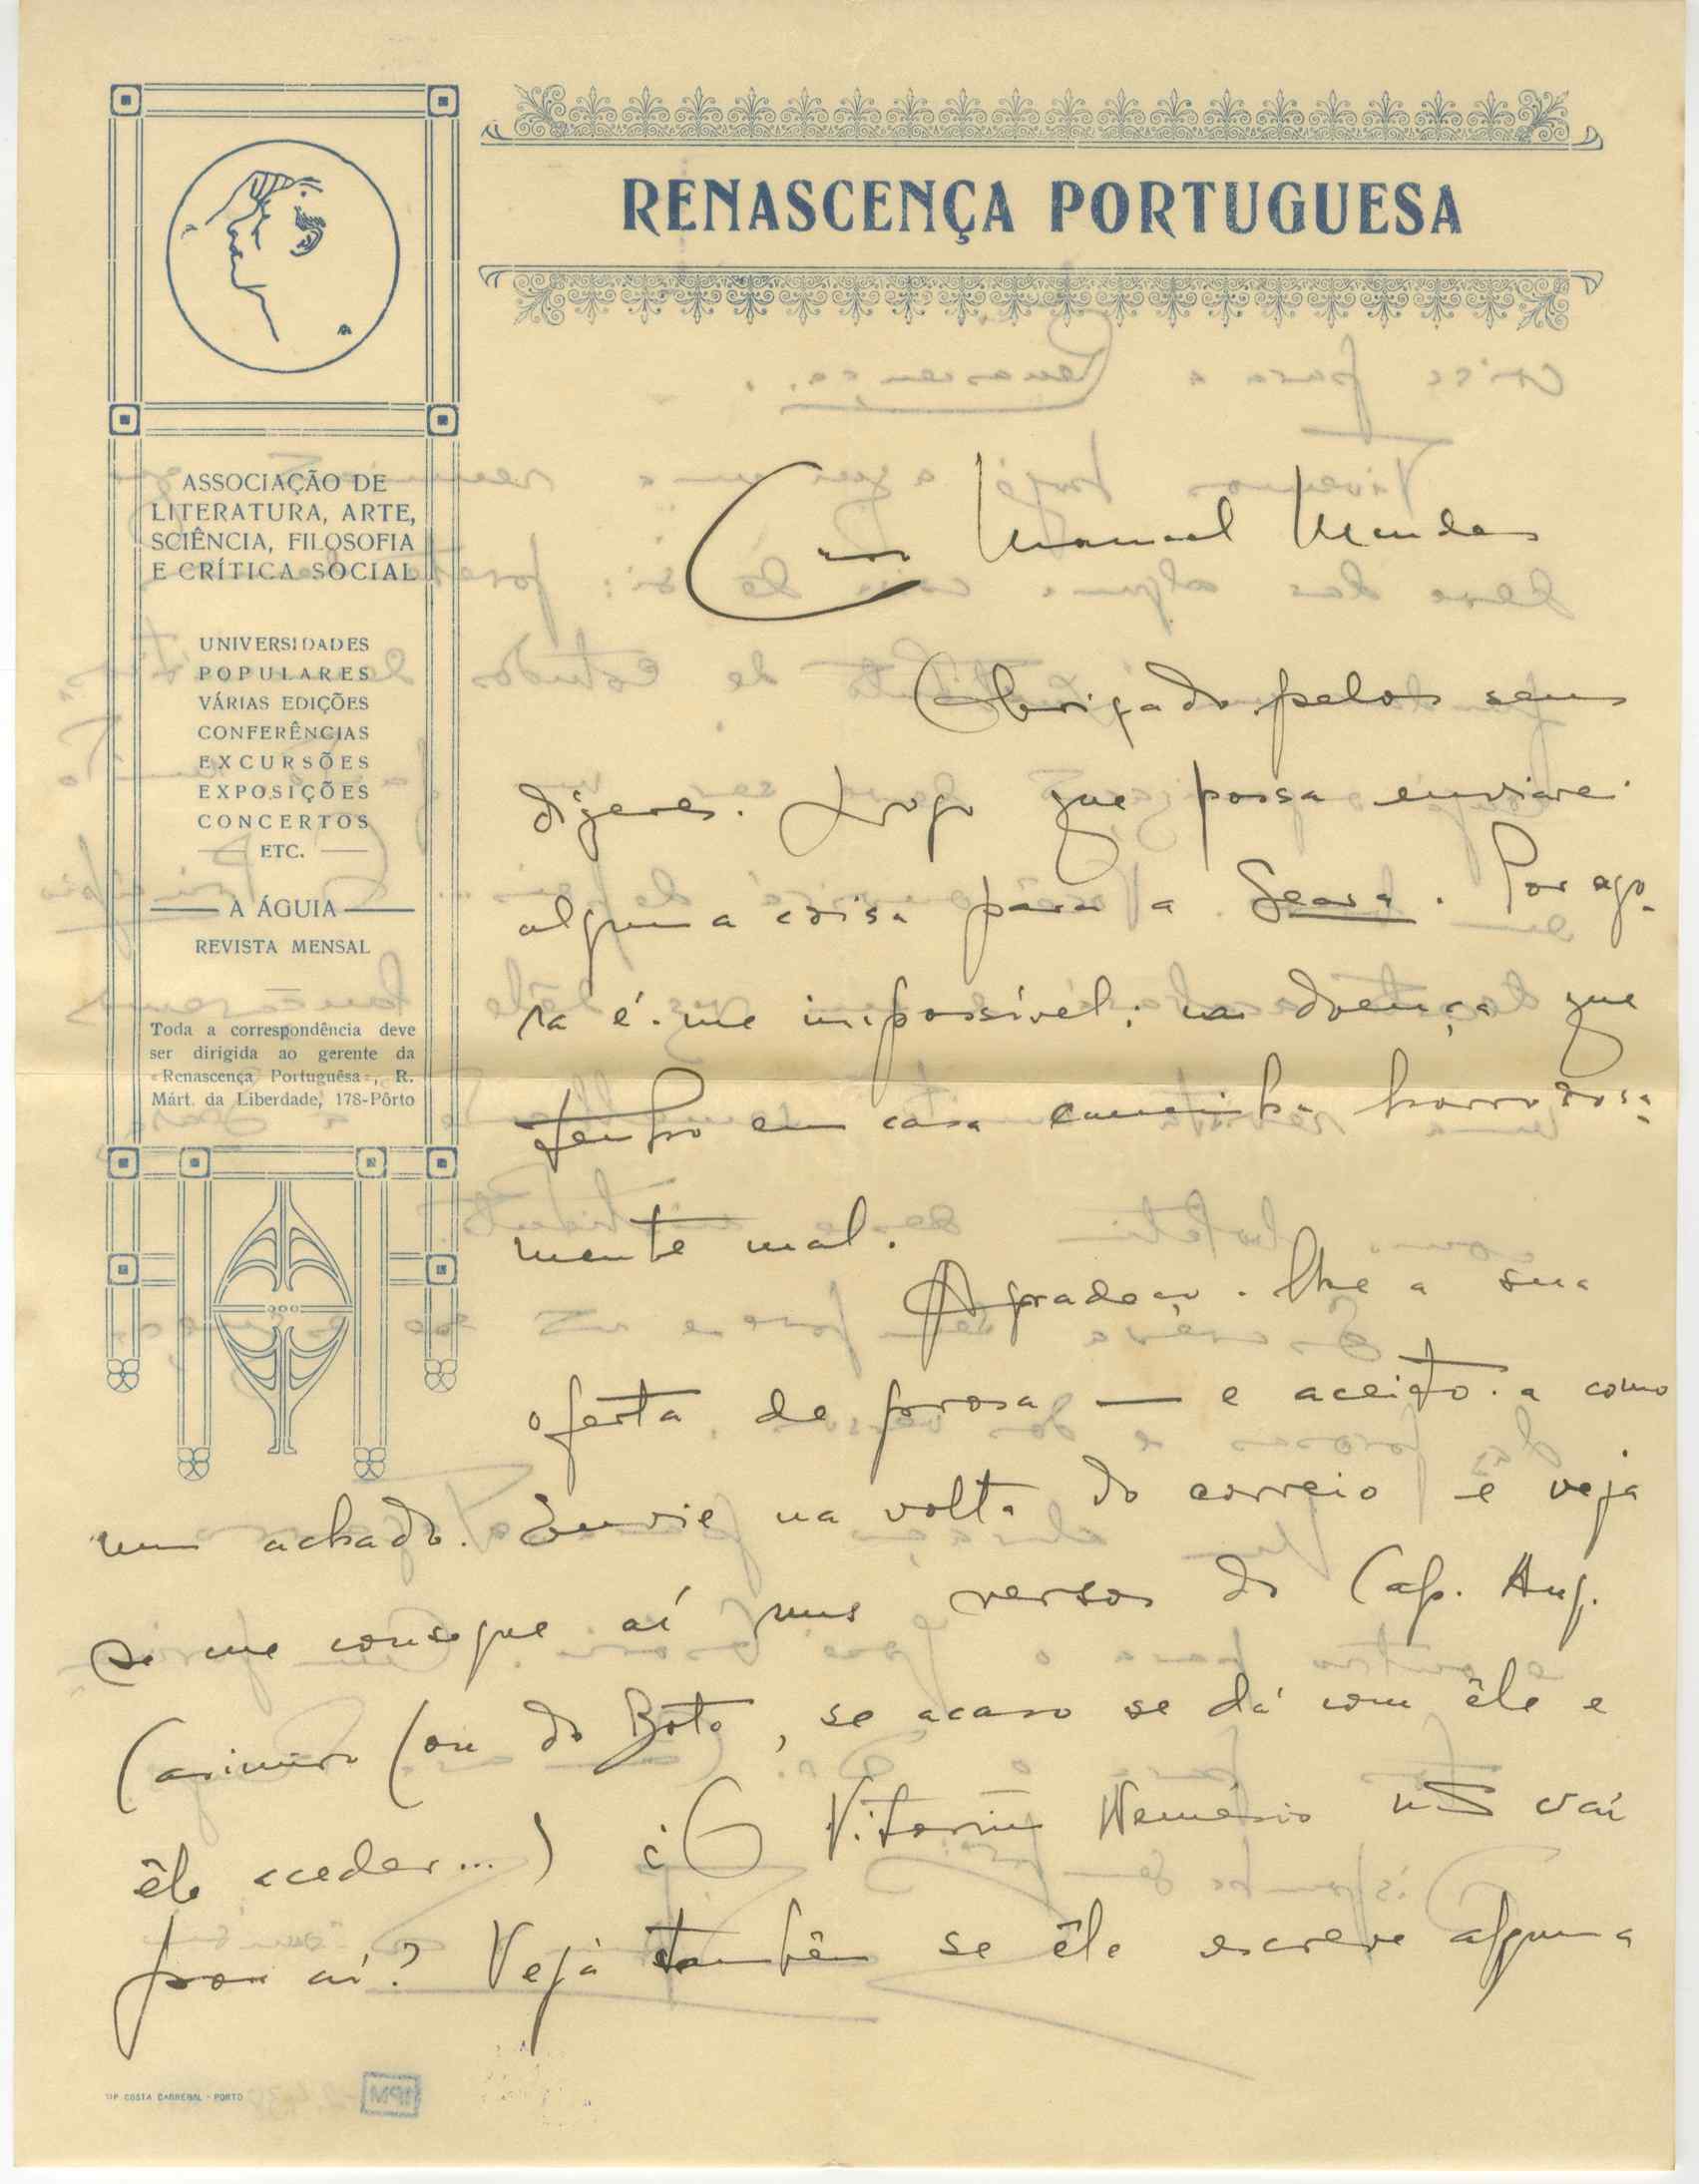 RENASCENÇA PORTUGUESA
ASSOCIAÇÃO DE
LITERATURA, ARTE,
SCIÊNCIA, FILOSOFIA
E CRÍTICA SOCIAL
UNIVERSIDADES
POPULARES
VÁRIAS EDIÇÕES
CONFERÊNCIAS
EXCURSÕES
EXPOSIÇÕES
CONCERTOS
ETC.
A ÁGUIA
REVISTA MENSAL
Toda a correspondência deve
ser dirigida ao gerente da
«Renascença Portuguêsa», R.
Márt. da Liberdade, 178-Pôrto
Caro Manuel Mendes
Obrigado pelos seus
dizeres. Logo que possa enviarei
alguma coisa para a Seara. Por ago-
ra é-me impossível: a doença que
tenho em casa caminha horrorosa-
mente mal.
Agradeço-lhe a sua
oferta de prosa — e aceito-a como
um achado. Envie na volta do correio e veja
se me consegue aí uns versos do Cap. Aug.
Casimiro (ou do Boto, se acaso se dá com êle e
êle aceder...) ¿O Vitorino Nemésio não vai
por aí? Veja também se êle escreve alguma
TIP. COSTA CARREGAL - PORTO